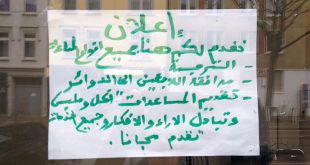 إعلان
نقدم لكم هنا جميع أنواع المساعدة
- الترجمة
- مرافقة اللاجئين الى الدوائر
- تقديم المساعدات "أكل وملبس"
وتبادل الآراء والأفكار وجميع الخدمات
تقدم مجاناً.